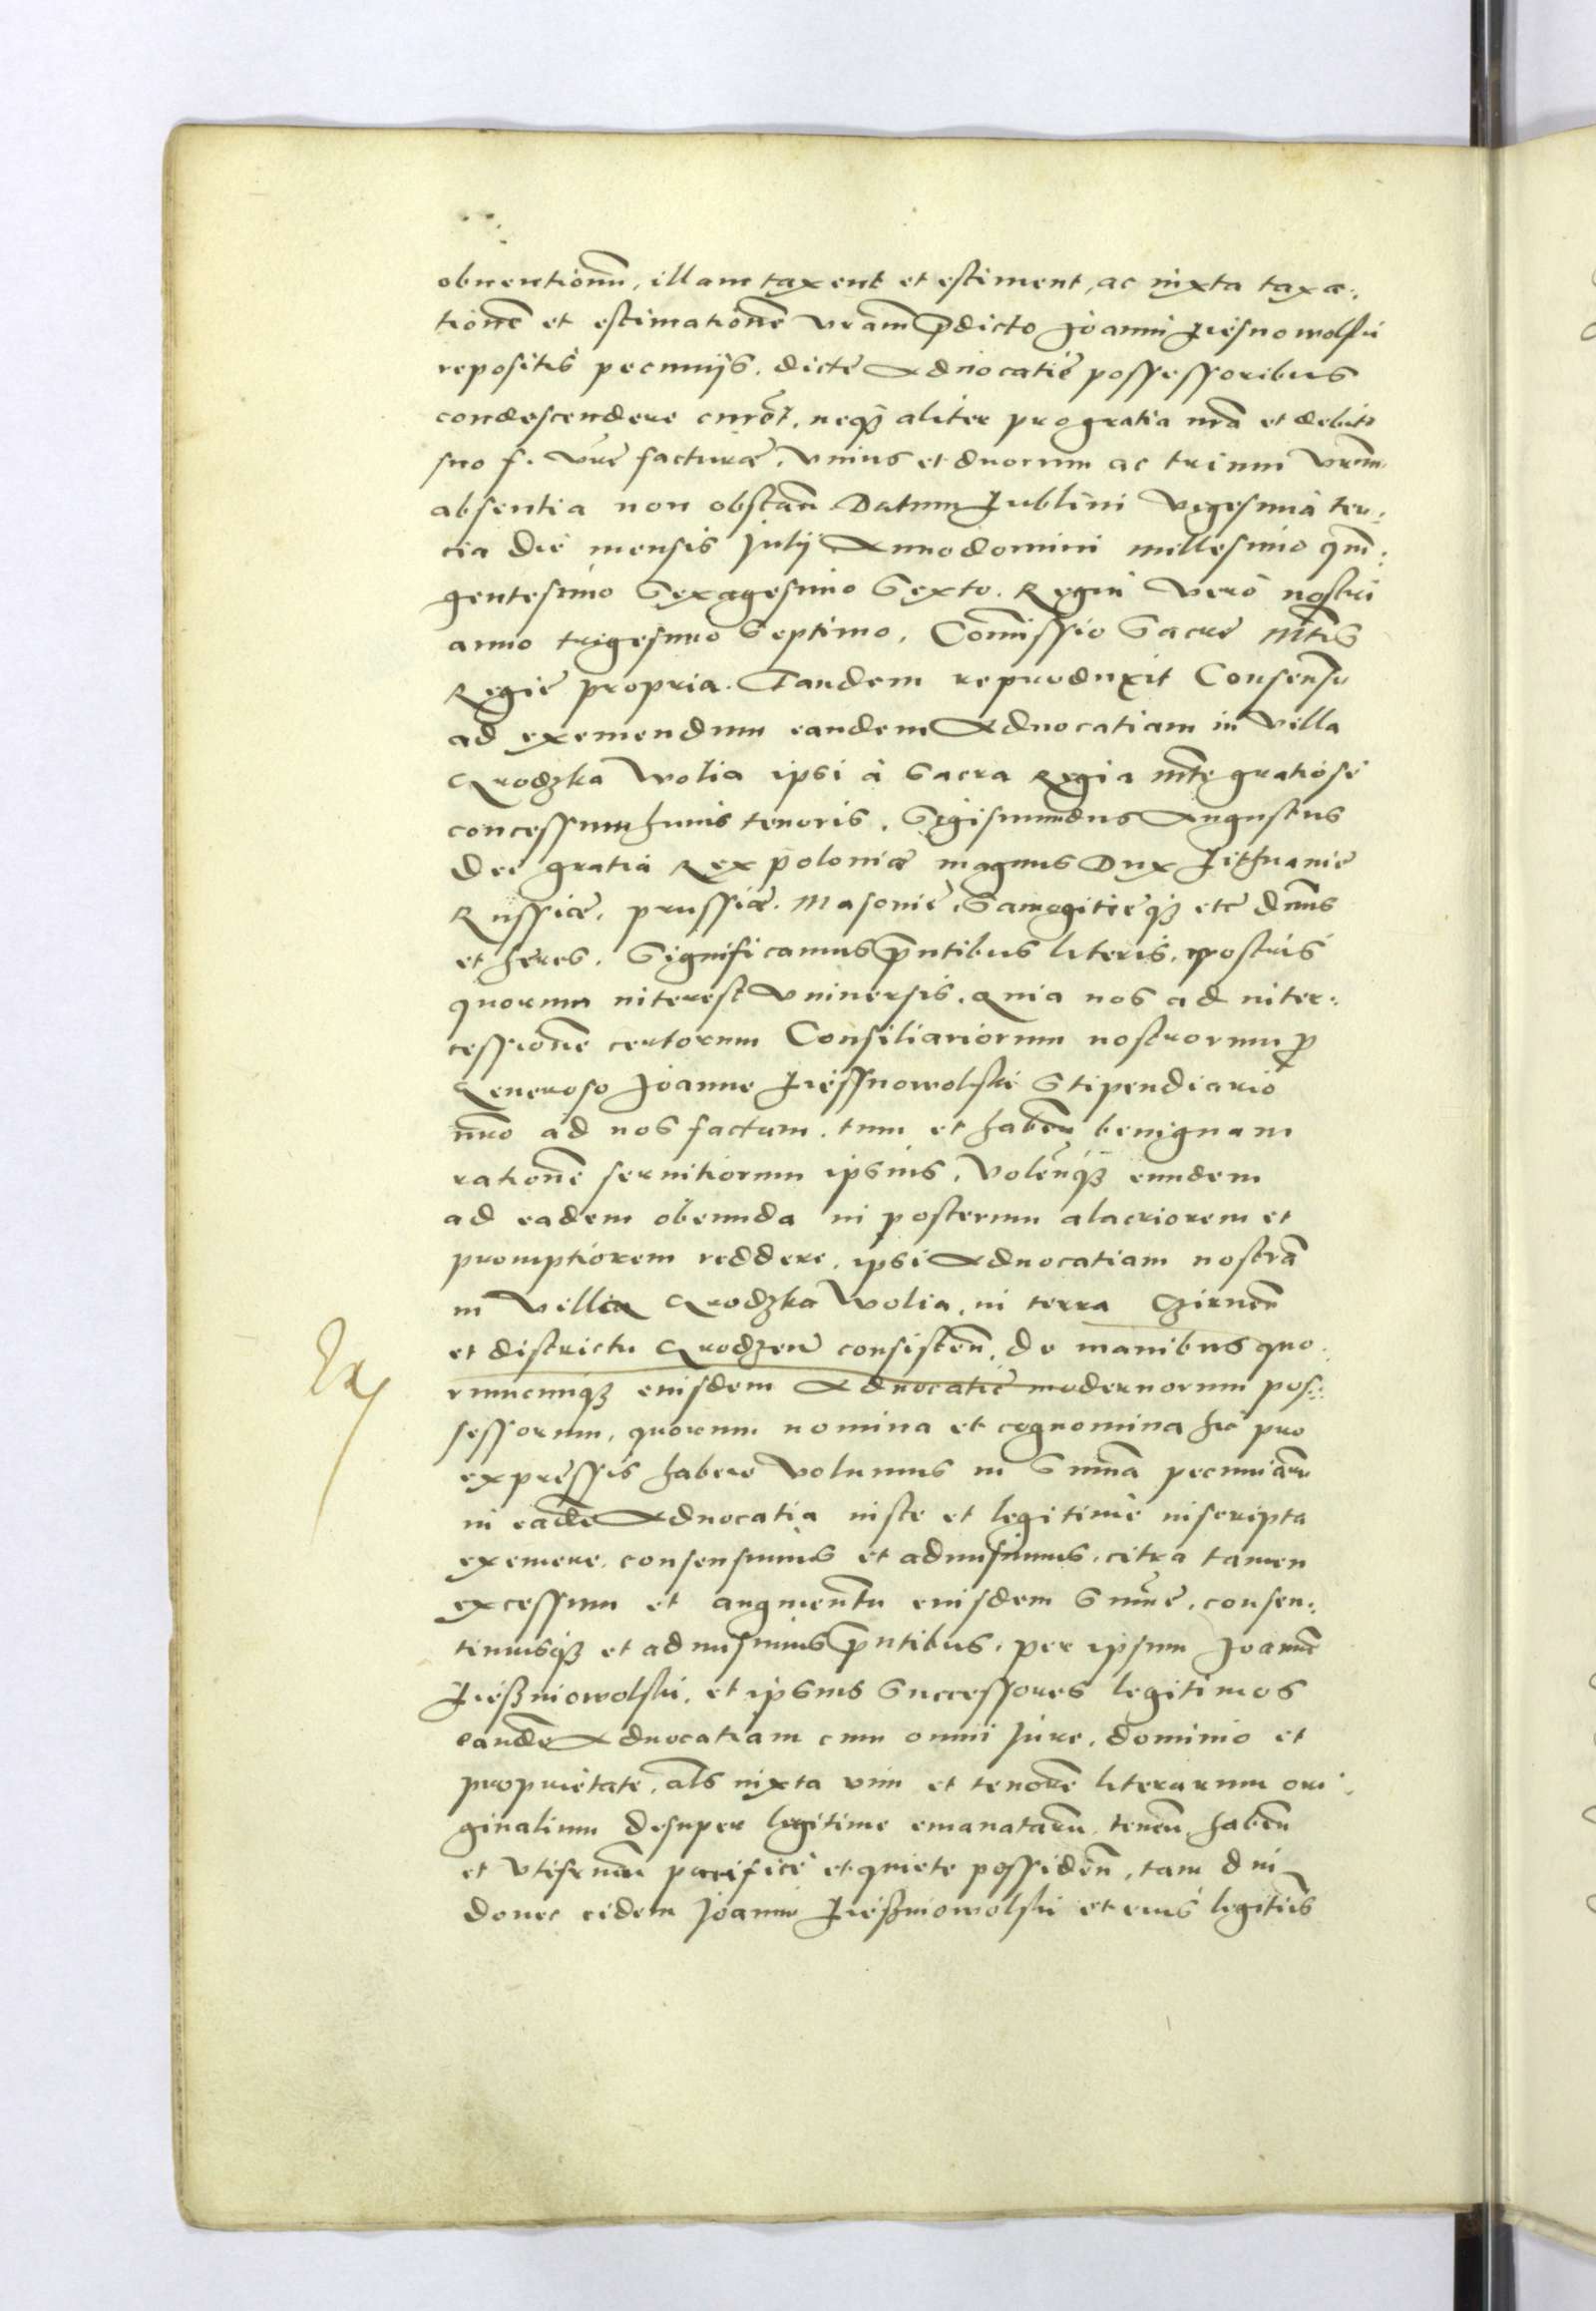 obuentionũ, illam taxent et estiment, ac iuxta taxa:
tionẽ et estimationẽ vram p̃dicto Joanni Liesnowolski
repositis pecuniis, dicte Aduocatie possessoribus
condescendere curẽt, neq3 aliter pro gratia nrã et debito
suo f. Vrẽ facturæ, vnius et duorum ac trium vrũm
absentia non obstañ Datum Lublini Vigesima ter:
cia die mensis Julij Anno domini millesimo quin:
gentesimo Sexagesimo Sexto. Regni vero nostri
anno trigesimo Septimo. Com̃issio Sacre Mtis
Regie propria. Tandem reproduxit Consensũ
ad exemendum eandem Aduocatiam in villa
Grodzka Wolia ipsi à Sacra Regia mte gratiose
concessum huius tenoris. Sigismundus Augustus
dei gratia Rex poloniæ magnus Dux Lithuanie
Russiæ, prussiæ, Masouie, Samogitieq3 etc dñus
et heres. Significamus p̃ntibus literis nostris
quorum interest Vniuersis. Quia nos ad inter:
cessionẽ certorum Consiliariorum nostrorum p̃
Generoso Joanne Liessnowolski Stipendiario
nrõ ad nos factam, tum et habeñ benignam
rationẽ seruitiorum ipsius, volẽnq3 eundem
ad eadem obeunda in posterum alacriorem et
promptiorem reddere, ipsi Aduocatiam nostrã
in villa Grodzka Wolia, in terra Czirneñ
et districtu Grodzeñ consisteñ, de manibus quo:
rumcunq3 eiusdem Aduocatie modernorum pos:
sessorum, quorum nomina et cognomina hic pro
expressis habere volumus in Sum̃a pecuniarũ
in eadẽ Aduocatia iuste et legitime inscripta
exemere, consensimus et admisimus, citra tamen
excessum et augmentũ eiusdem Sum̃e, consen:
timusq3 et admisimus p̃ntibus, per ipsum Joannẽ
Ließniowolski, et ipsius Successores legitimos
eandẽ Aduocatiam cum omni Jure, dominio et
proprietate, als iuxta vim et tenorẽ literarum ori:
ginalium desuper legitime emanatarũ teneñ, habeñ
et vtifrueñ pacifice et quiete possideñ, tam diu
donec eidem Joanni Ließniowolski et eius legitiis